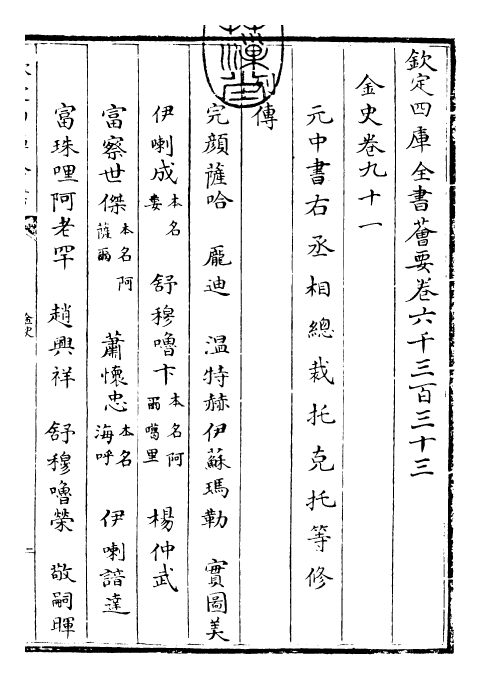 欽定四庫全書薈要卷六千三百三十三
金史卷九十一
元中書右丞相總裁托克托等修
列傳
完顏薩哈 龐迪 温特赫伊蘇瑪勒 實圖美
伊喇成本名婁 舒穆嚕卞本名阿爾噶里 楊仲武
富察世傑本名阿薩爾 蕭懷忠本名海呼 伊喇諳達
富珠哩阿老罕 趙興祥 舒穆嚕榮 敬嗣暉
金史